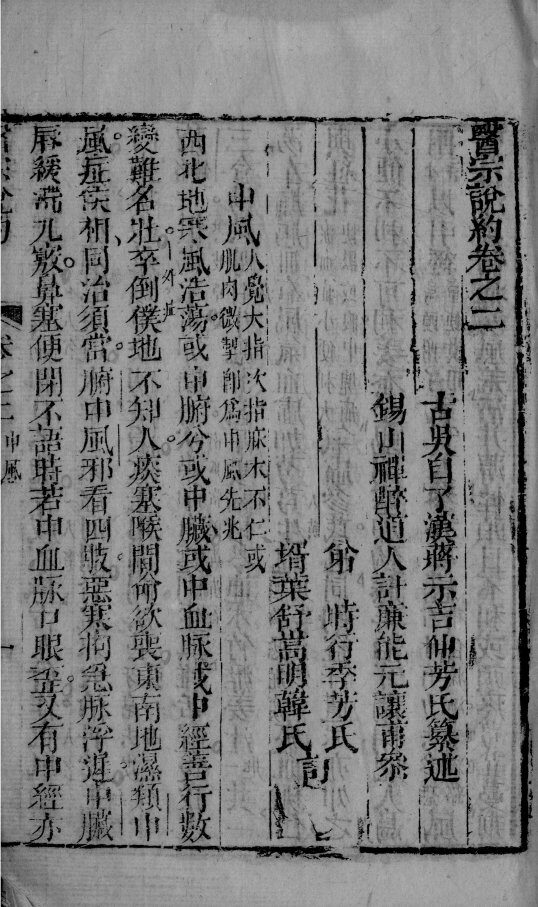 醫宗說約卷之二
古吳自了漢蔣示吉仲芳氏纂述
錫山禪醉道人計廉能元讓甫叅
時行季芳氏
壻葉舒嵩明韓氏
中風人覺大指次指麻木不仁或肌肉微掣卽爲中風先兆
西北地寒風浩蕩或中腑兮或中臟或中血脉或中經善行數
變難名壯卒倒僕地不知人痰塞喉間命欲喪東南地濕類中
風症矦相同治須當腑中風邪看四肢惡寒拘急脉浮遲中臟
唇緩滯九竅鼻塞便閉不語時若中血脉口眼歪又有中經亦
卷之二 中風 一